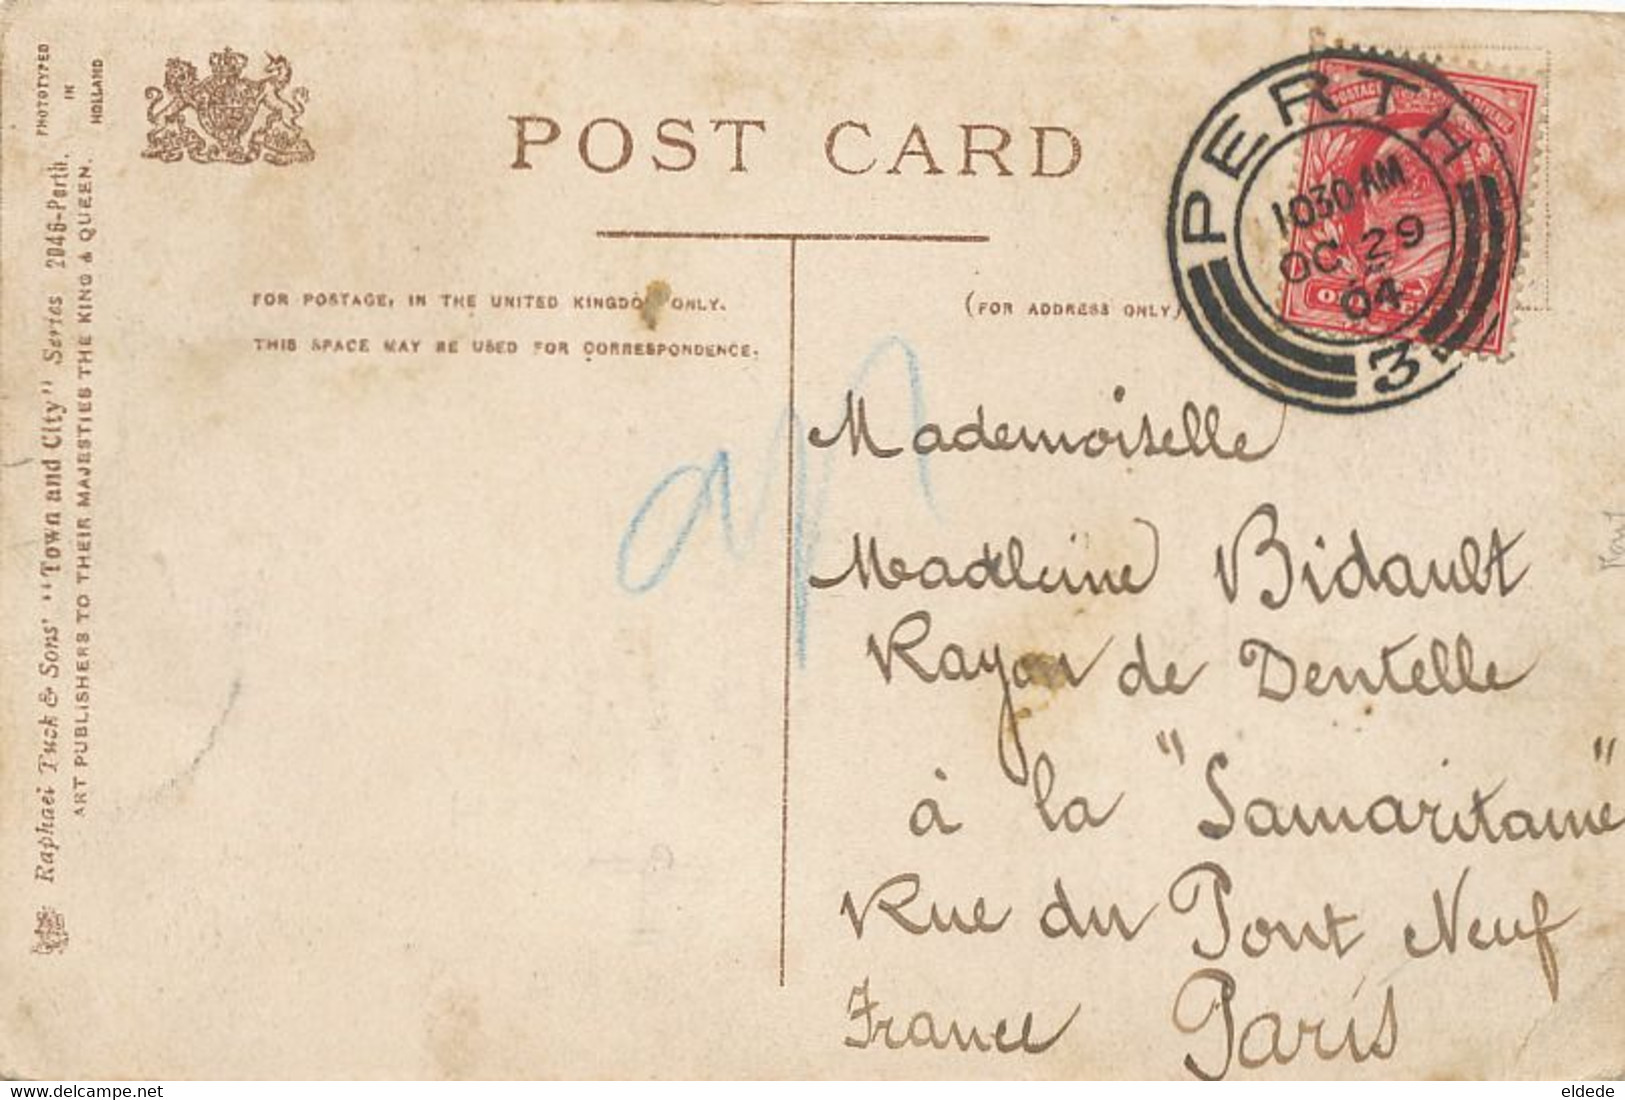 PHOTOTYPED
IN
HOLLAND
Raphael Tuck & Sons' "Town and City" Series 2046-Perth.
ART PUBLISHERS TO THEIR MAJESTIES THE KING & QUEEN.
POST CARD
FOR POSTAGE, IN THE UNITED KINGDOM ONLY.
THIS SPACE MAY BE USED FOR CORRESPONDENCE.
(FOR ADDRESS ONLY)
PERTH
1030 AM
OC 29
04
3
Mademoiselle
Madeleine Bidault
Rayon de Dentelle
à la "Samaritaine"
Rue du Pont Neuf
France Paris
www.delcampe.net
eldede